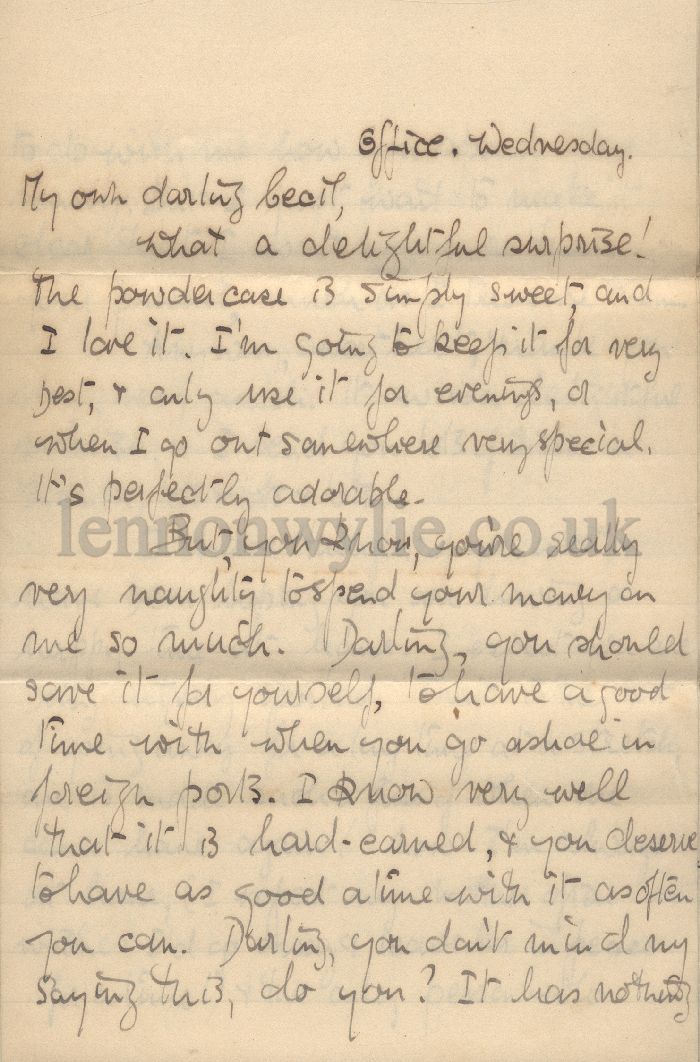 Office. Wednesday.
My own darling Cecil,
What a delightful surprise!
The powdercase is simply sweet, and
I love it. I'm going to keep it for very
best, & only use it for evenings, or
when I go out somewhere very special.
It's perfectly adorable.
lennonwylie.co.uk
But, you know, you're really
very naughty to spend your money on
me so much. Darling, you should
save it for yourself, to have a good
time with when you go ashore in
foreign ports. I know very well
that it is hard-earned, & you deserve
to have as good a time with it as often
you can. Darling, you don't mind my
saying this, do you? It has nothing